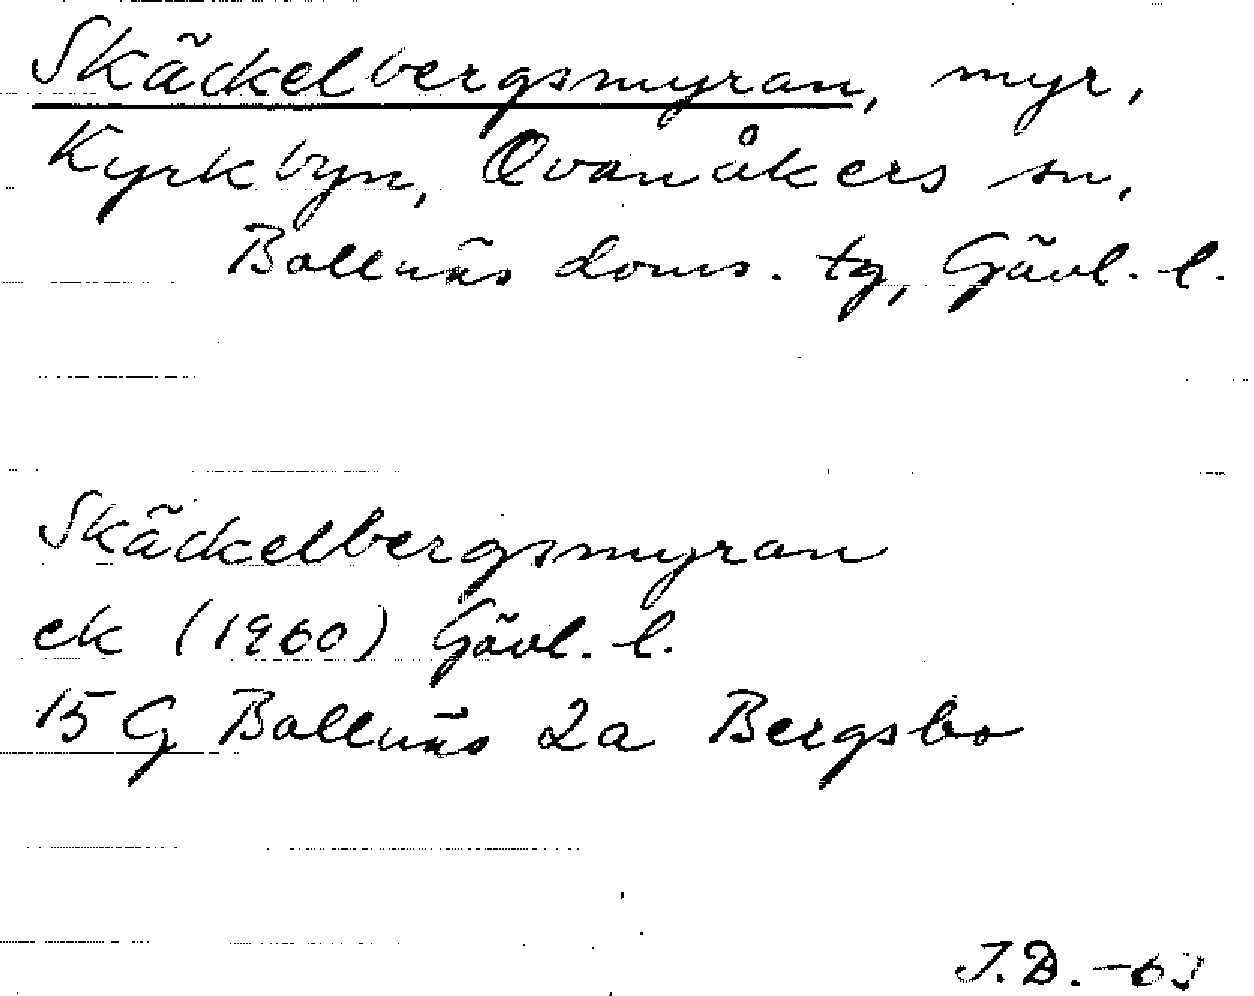 Skäckelbergsmyran, myr,
Kyrkbyn, Ovanåkers sn,
Bollnäs doms. tg, Gävl. l.
Skäckelbergsmyran
ek (1960) Gävl. l.
15 G Bollnäs 2a Bergsbo
J.D. -63